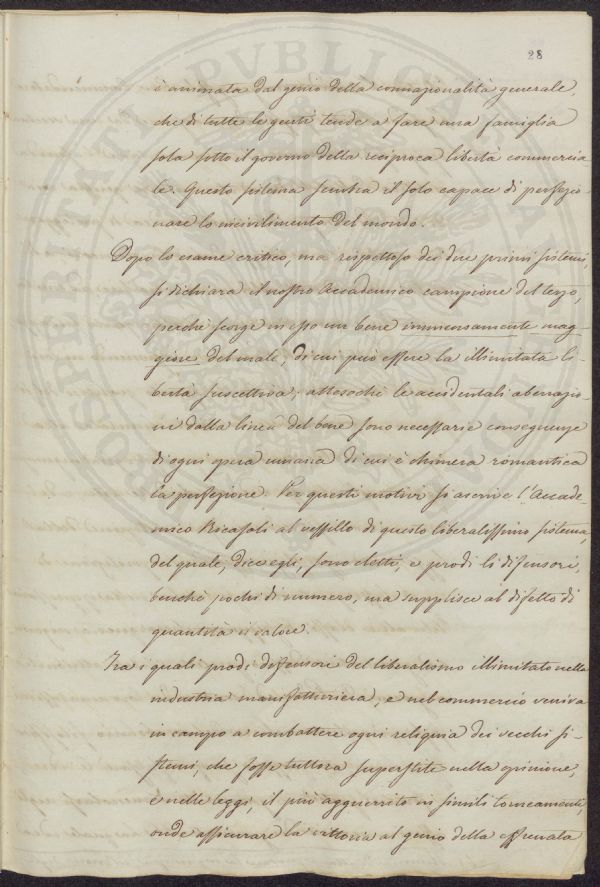 28
è animata dal genio della connazionalità generale,
che di tutte le genti tende a fare una famiglia
sola sotto il governo della reciproca libertà commercia
le. Questo sistema sembra il solo capace di perfezio-
nare lo incivilimento del mondo.
Dopo lo esame critico, ma rispettoso dei due primi sistemi,
si dichiara il nostro Accademico campione del terzo,
perchè scorge in esso un bene immensamente mag-
giore del male, di cui può essere la illimitata li-
bertà suscettiva; attesochè le accidentali aberrazio-
ni dalla linea del bene sono necessarie conseguenze
di ogni opera umana di cui è chimera romantica
la perfezione. Per questi motivi si ascrive l'Accade-
mico Ricasoli al vessillo di questo liberalissimo sistema,
del quale, dice egli, sono eletti, e prodi li difensori,
benchè pochi di numero, ma supplisce al difetto di
quantità il valore.
Tra i quali prodi difensori del liberalismo illimitato nella
industria manifatturiera, e nel commercio veniva
in campo a combattere ogni reliquia dei vecchi si-
stemi, che fosse tuttora superstite nella opinione,
e nelle leggi, il più agguerrito in simili torneamenti,
onde assicurare la vittoria al genio della effrenata
PROSPERITATI PVBLICAE